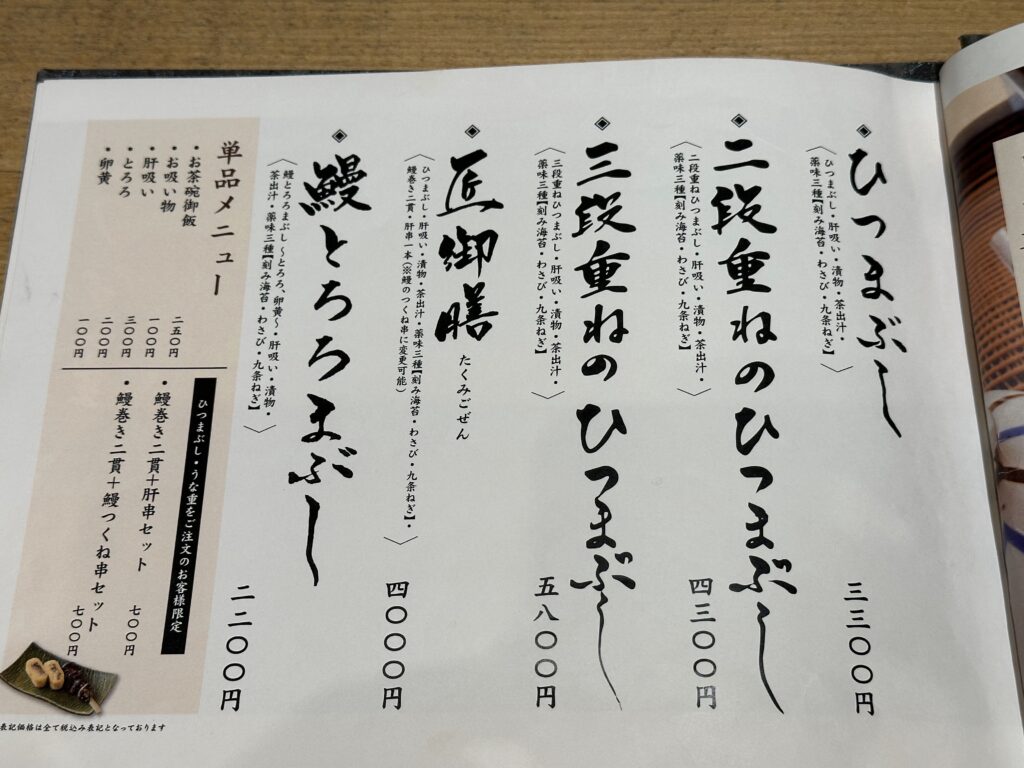 ひつまぶし
〈ひつまぶし・肝吸い・漬物・茶出汁・
薬味三種【刻み海苔・わさび・九条ねぎ】〉
三三〇〇円
二段重ねのひつまぶし
〈二段重ねひつまぶし・肝吸い・漬物・茶出汁・
薬味三種【刻み海苔・わさび・九条ねぎ】〉
四三〇〇円
三段重ねのひつまぶし
〈三段重ねひつまぶし・肝吸い・漬物・茶出汁・
薬味三種【刻み海苔・わさび・九条ねぎ】〉
五八〇〇円
匠御膳 たくみごぜん
〈ひつまぶし・肝吸い・漬物・茶出汁・薬味三種【刻み海苔・わさび・九条ねぎ】・
鰻巻き二貫・肝串一本(※鰻のつくね串に変更可能)〉
四〇〇〇円
鰻とろろまぶし
〈鰻とろろまぶし〜とろろ、卵黄〜・肝吸い・漬物・
茶出汁・薬味三種【刻み海苔・わさび・九条ねぎ】〉
二二〇〇円
単品メニュー
・お茶碗御飯 二五〇円
・お吸い物 一〇〇円
・肝吸い 三〇〇円
・とろろ 二〇〇円
・卵黄 一〇〇円
ひつまぶし・うな重をご注文のお客様限定
・鰻巻き二貫+肝串セット 七〇〇円
・鰻巻き二貫+鰻つくね串セット 七〇〇円
表記価格は全て税込み表記となっております